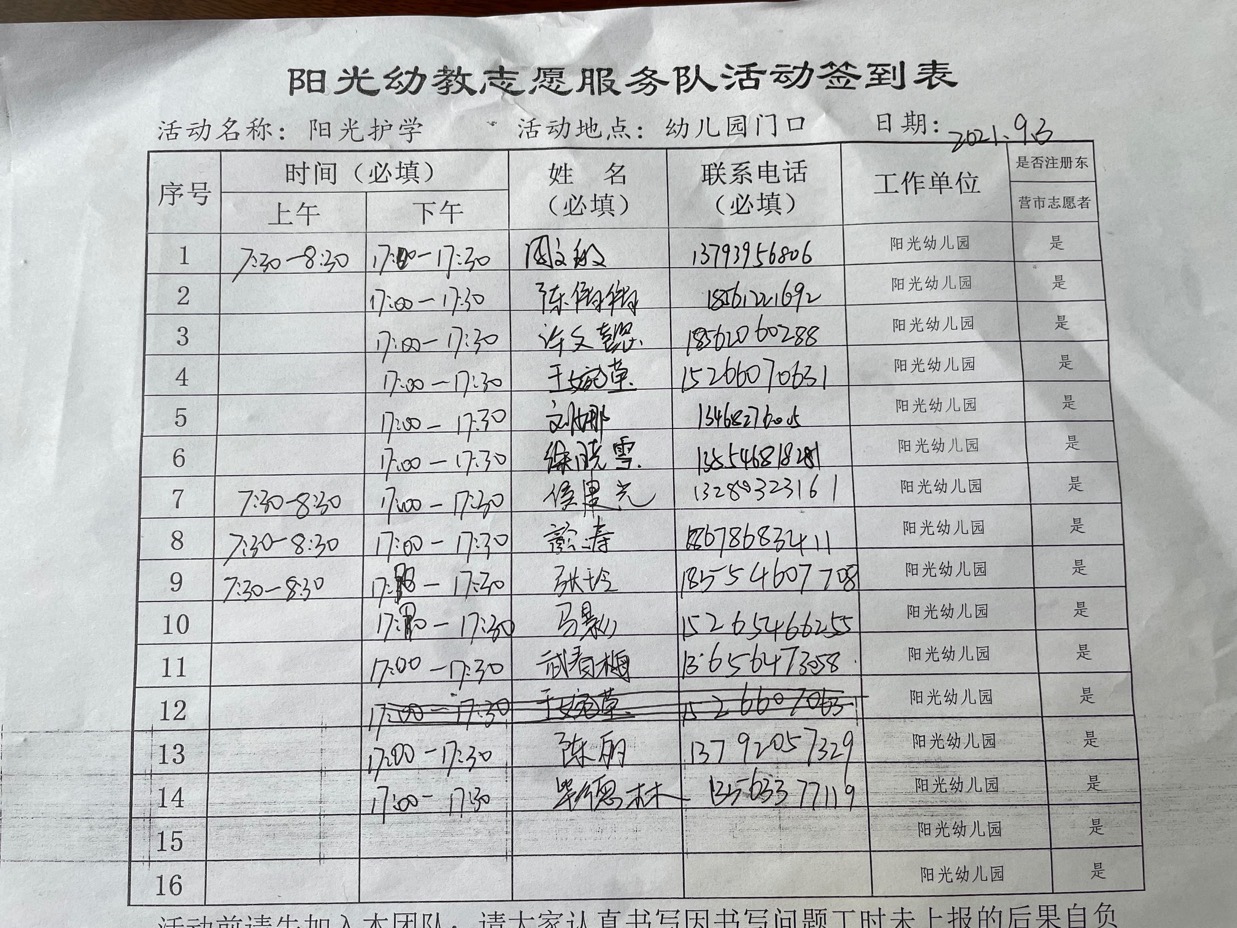 阳光幼教志愿服务队活动签到表
活动名称：阳光护学 活动地点：幼儿园门口 日期：2021.9.3
序号 时间（必填） 姓名（必填） 联系电话（必填） 工作单位 是否注册东营市志愿者
上午 下午
1 7:30-8:30 17:00-17:30 13793956806 阳光幼儿园 是
2 17:00-17:30 陈俏俏 18561221692 阳光幼儿园 是
3 17:00-17:30 许文慧 18562060288 阳光幼儿园 是
4 17:00-17:30 15266070631 阳光幼儿园 是
5 17:00-17:30 刘娜 阳光幼儿园 是
6 17:00-17:30 徐晓雪 阳光幼儿园 是
7 7:30-8:30 17:00-17:30 13289323161 阳光幼儿园 是
8 7:30-8:30 17:00-17:30 彭涛 186786832411 阳光幼儿园 是
9 7:30-8:30 17:00-17:30 张玲 18554607708 阳光幼儿园 是
10 17:00-17:30 15265466255 阳光幼儿园 是
11 17:00-17:30 武春梅 13656473058 阳光幼儿园 是
12 17:00-17:30 阳光幼儿园 是
13 17:00-17:30 陈丽 13792057329 阳光幼儿园 是
14 17:00-17:30 毕德林 13563377119 阳光幼儿园 是
15 阳光幼儿园 是
16 阳光幼儿园 是
活动前请先加入本团队；请大家认真书写因书写问题工时未上报的后果自负